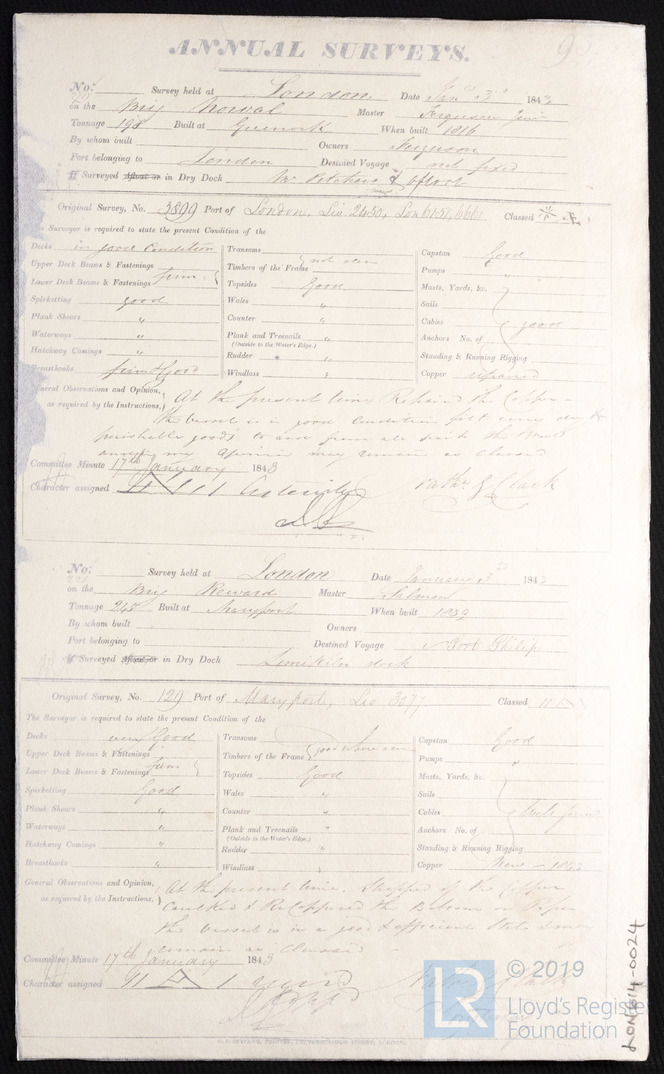 ANNUAL SURVEYS.
No. Survey held at London Date Jan 3 1843
on the Brig Master Ferguson
Tonnage 198 Built at Greenock When built 1816
By whom built Owners Ferguson
Port belonging to London Destined Voyage not fixed
If Surveyed Afloat or in Dry Dock & afloat
Original Survey, No. 3899 Port of London, Lio 2450, Lon 6151, 6661 Classed
Surveyor is required to state the present Condition of the
Decks in good Condition Transoms Capstan Good
Upper Deck Beams & Fastenings firm Timbers of the Frame not seen Pumps "
Lower Deck Beams & Fastenings Topsides Good Masts, Yards, &c.
Spirketting good Wales " Sails
Plank Shears " Counter " Cables good
Waterways " Plank and Treenails " Anchors No. of
(Outside to the Water's Edge.)
Hatchway Comings " Rudder " Standing & Running Rigging
Breasthooks firm & good Windlass " Copper repaired
General Observations and Opinion, At the present time Repaired the Copper -
as required by the Instructions, the vessel is in good Condition fit to carry dry &
perishable goods to and from all parts the World
and in my Opinion may remain as Classed
Committee Minute 17th January 1843
Character assigned Nathl. Clark
No. Survey held at London Date January 3rd 1843
on the Brig Reward Master
Tonnage 248 Built at Maryport When built 1839
By whom built Owners
Port belonging to Destined Voyage Port Philip
If Surveyed Afloat or in Dry Dock Limekiln dock
Original Survey, No. 129 Port of Maryport, Lio 3977 Classed
The Surveyor is required to state the present Condition of the
Decks very Good Transoms Capstan Good
Upper Deck Beams & Fastenings firm Timbers of the Frame good where seen Pumps "
Lower Deck Beams & Fastenings Topsides Good Masts, Yards, &c.
Spirketting Good Wales " Sails
Plank Shears " Counter " Cables
Waterways " Plank and Treenails " Anchors No. of
(Outside to the Water's Edge.)
Hatchway Comings " Rudder " Standing & Running Rigging
Breasthooks " Windlass Copper New - 1843
General Observations and Opinion, At the present time. Stripped of the Copper
as required by the Instructions, Caulked & Re Coppered the Bottom
the vessel is in a good & efficient State & may
remain as Classed -
Committee Minute 17th January 1843
Character assigned A 1
LR © 2019
Lloyd's Register
Foundation
LON614-0024